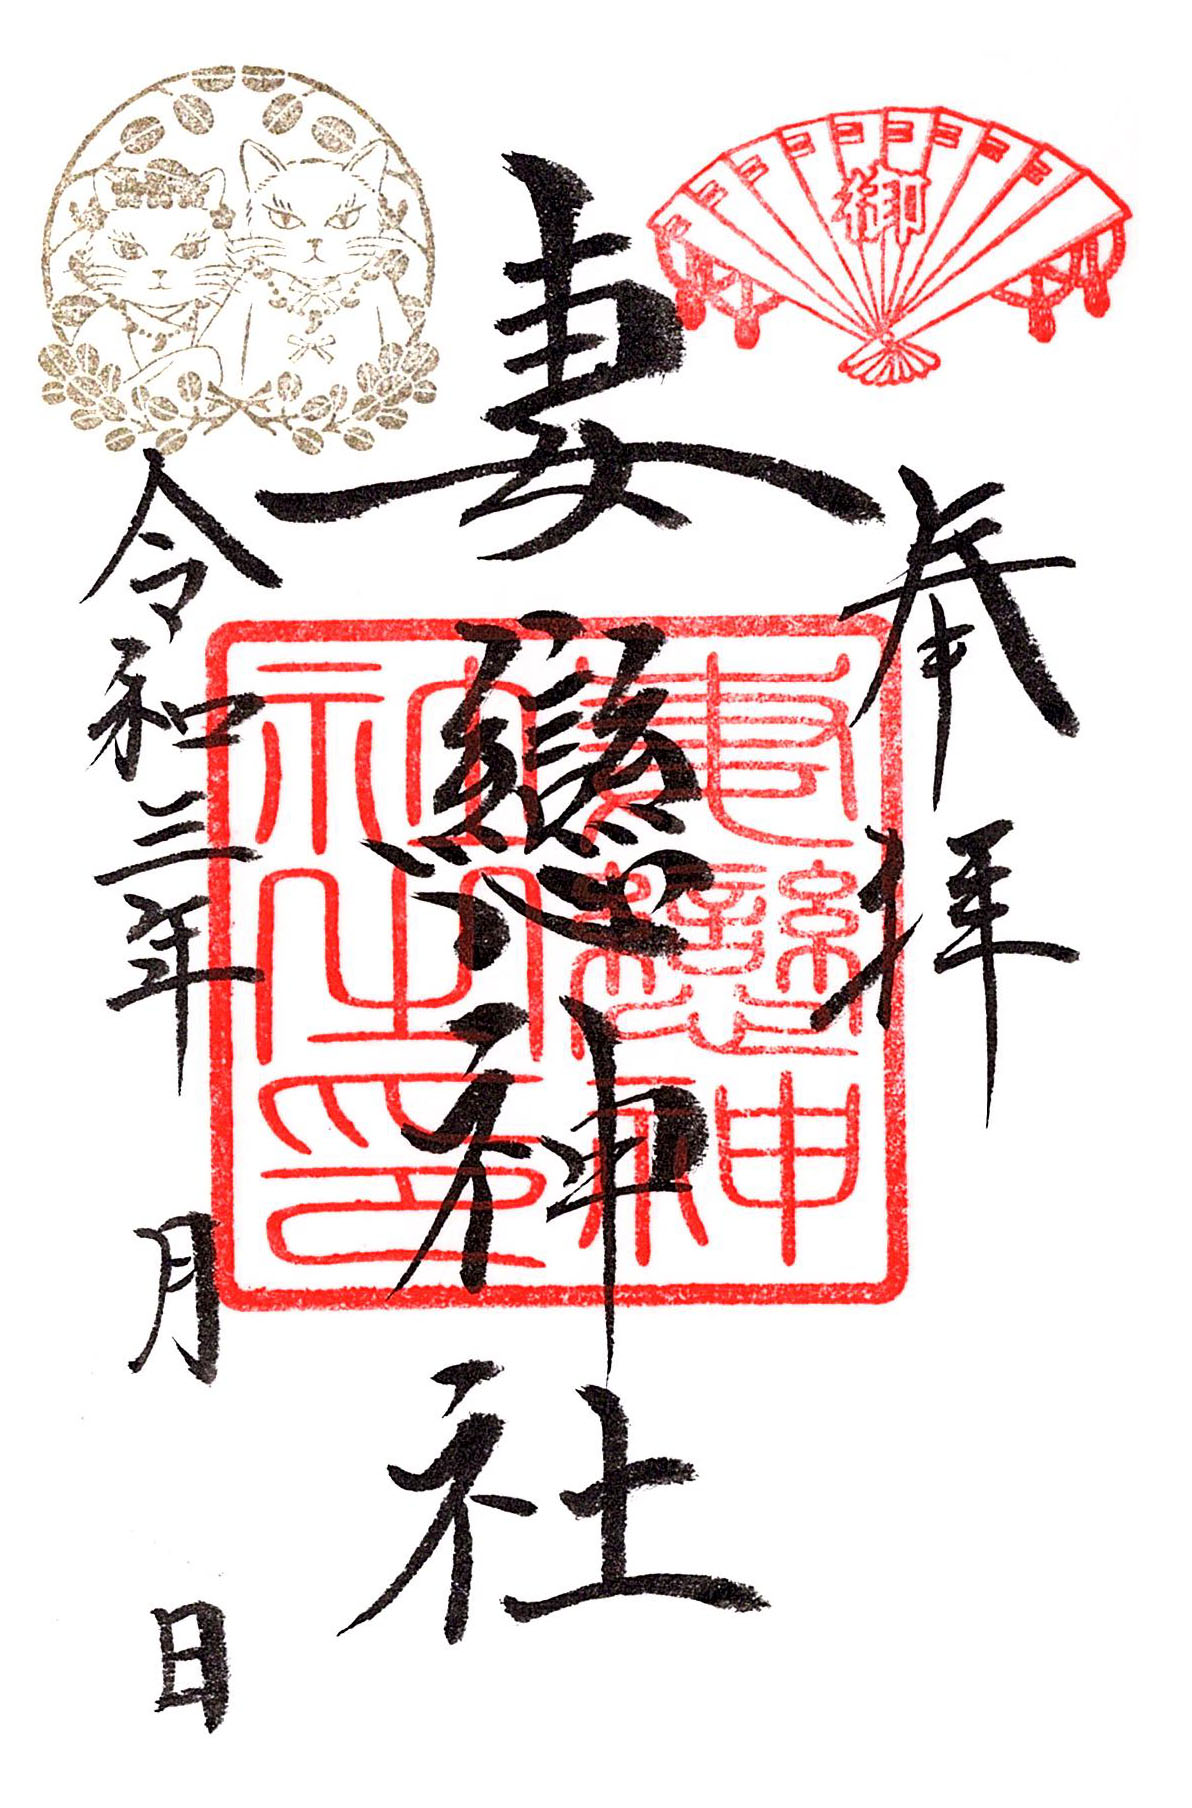 御
奉拝
妻戀神社
妻戀神
社之印
令和三年 月 日